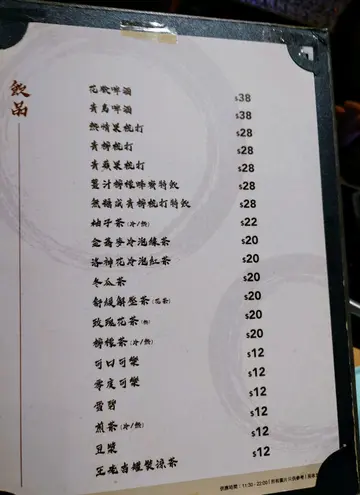 飲品
花歌啤酒 $38
青島啤酒 $38
熱情果梳打 $28
青檸梳打 $28
青蘋果梳打 $28
薑汁檸檬特飲 $28
青檸梳打特飲 $28
柚子茶(冷/熱) $22
冷泡綠茶 $20
洛神花冷泡紅茶 $20
冬瓜茶 $20
舒緩解壓茶(花茶) $20
玫瑰花茶(熱) $20
檸檬茶(冷/熱) $20
可口可樂 $12
零度可樂 $12
雪碧 $12
煎茶(冷/熱) $12
豆漿 $12
王老吉罐裝涼茶 $12
供應時間：11:30 - 22:00 | 所有圖片只供參考 |